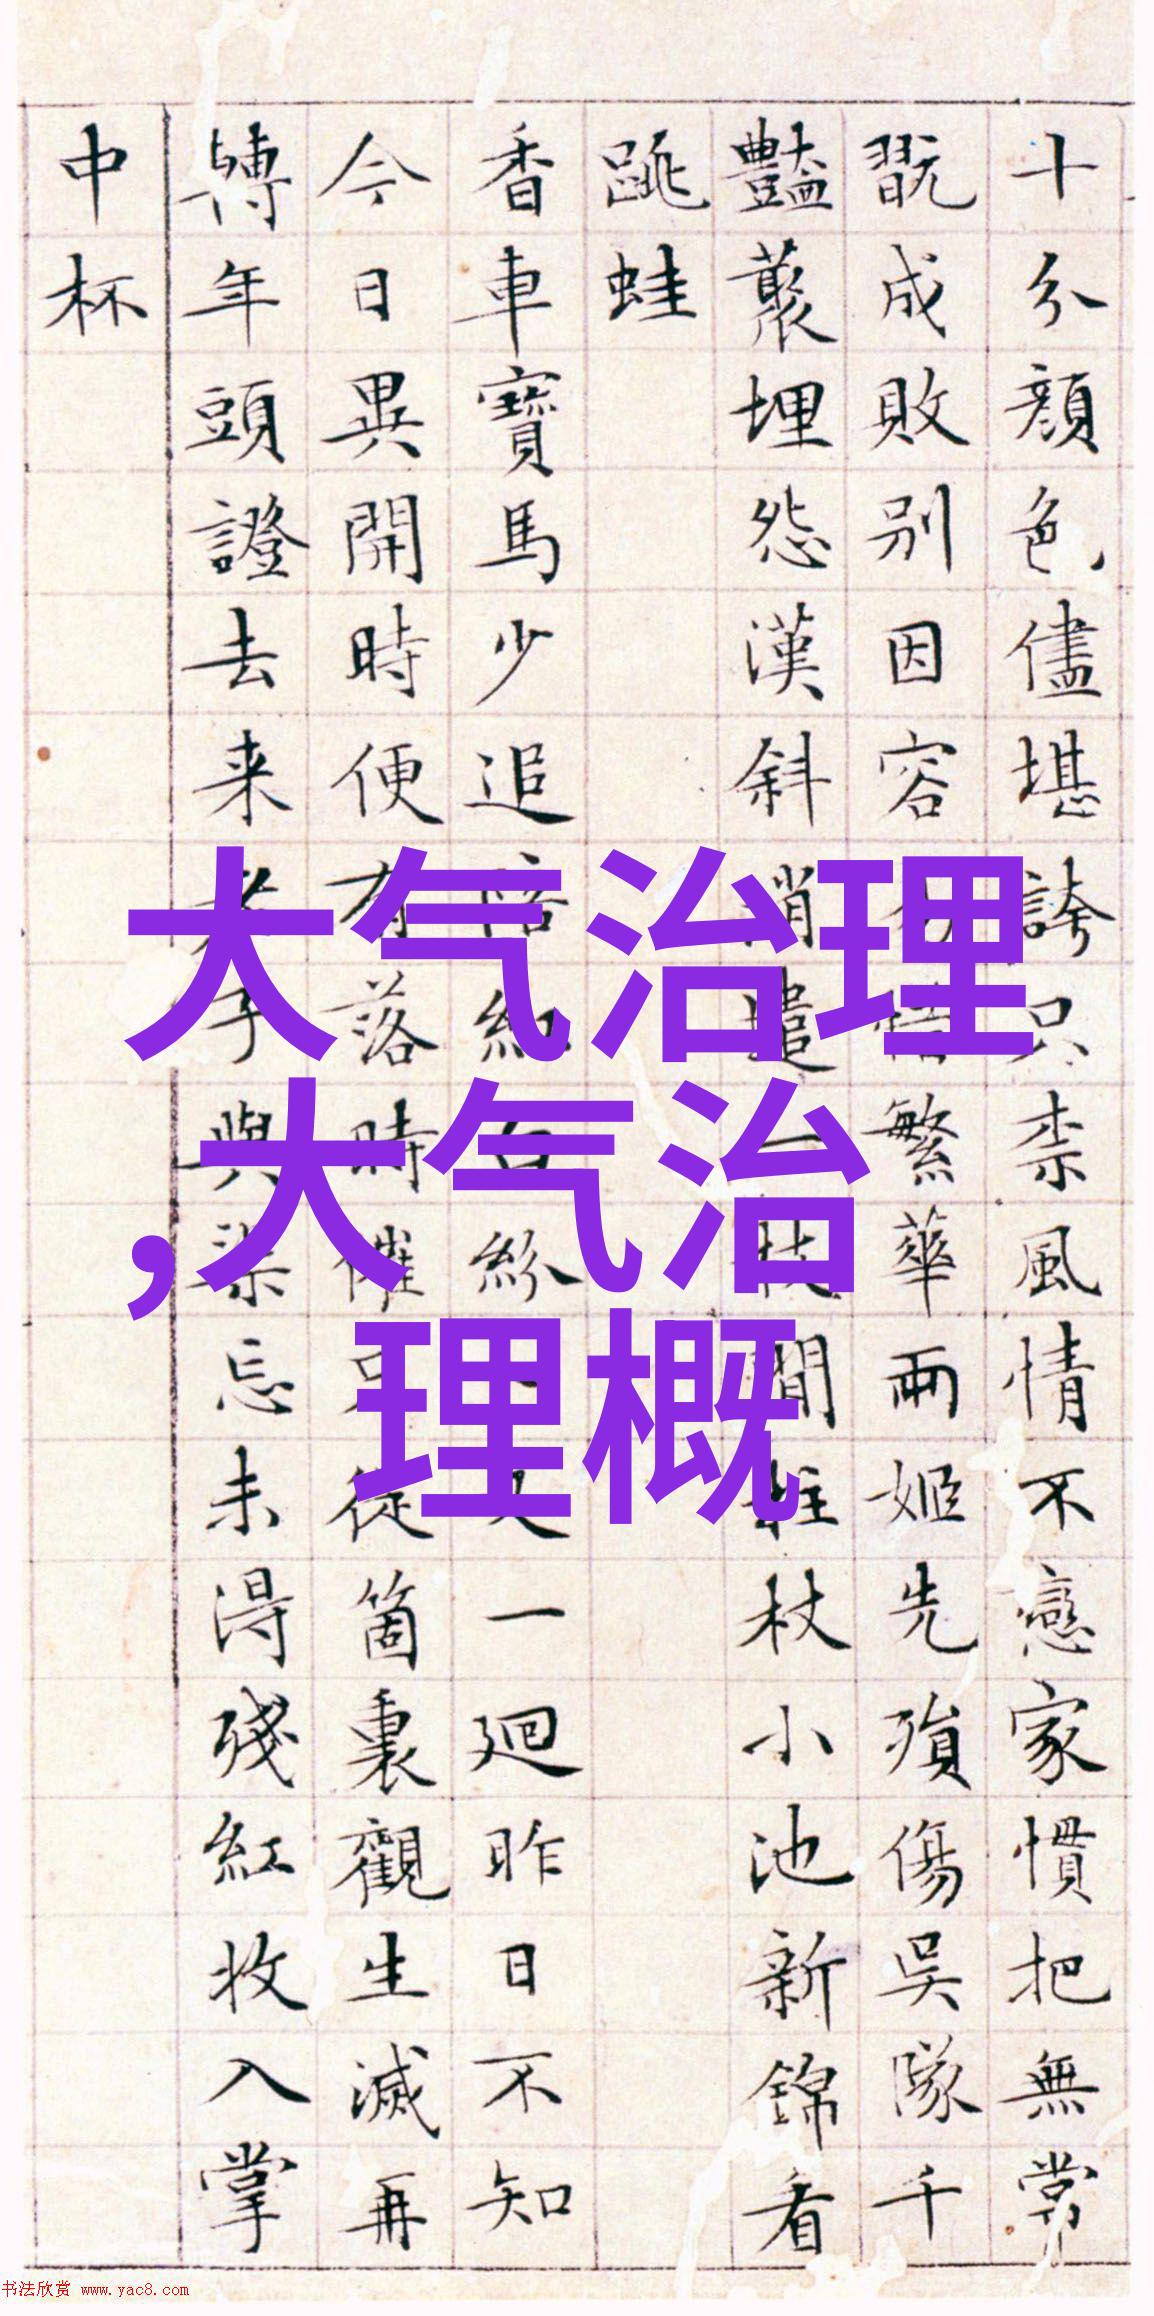 十分顏色儘堪誇只柰風情不戀家慣把無常
翫成敗別因容悟繁華兩姬先殞傷吳隊千
豔叢埋怨漢斜消遣一枝閒拄杖小池新錦看
跳蛙
香車寶馬少追陪紅白紛又一廻昨日不知
今日異開時便有落時催只從箇裏觀生滅再
轉年頭證去来老子與渠忘未得殘紅收入掌
中杯
大气治理
,大气治
理概
书法欣赏 www.yac8.com